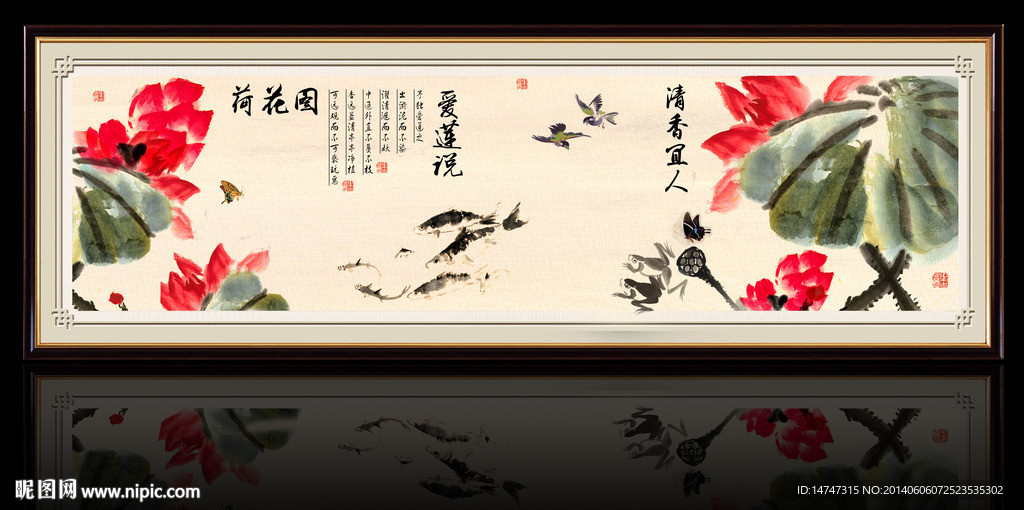 荷花图
爱莲说
予独爱莲之
出淤泥而不染
濯清涟而不妖
中通外直不蔓不枝
香远益清亭亭净植
可远观而不可亵玩焉
清香宜人
昵图网 www.nipic.com
ID:14747315 NO:20140606072523535302